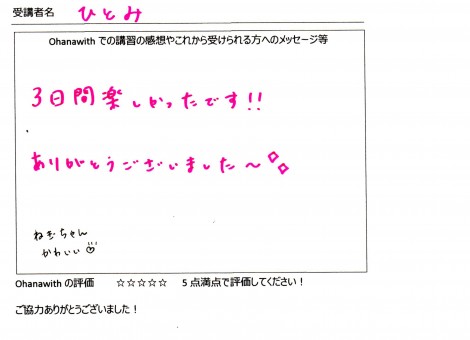 受講者名 ひとみ
Ohanawith での講習の感想やこれから受けられる方へのメッセージ等
3日間楽しかったです!!
ありがとうございました〜
ねぎちゃん
かわいい
Ohanawith の評価 ☆☆☆☆☆ 5点満点で評価してください！
ご協力ありがとうございました！